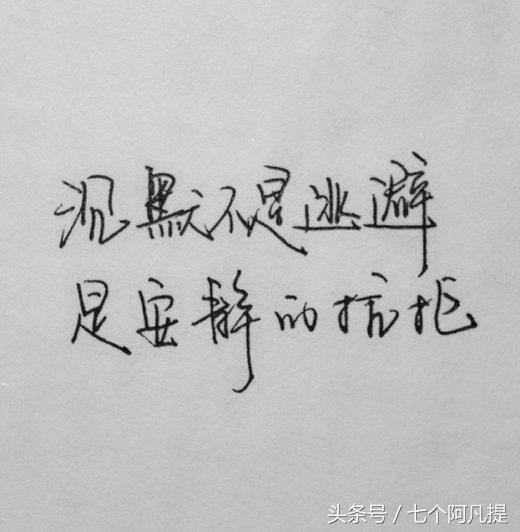 沉默不是逃避
是安静的抗拒
头条号／七个阿凡提